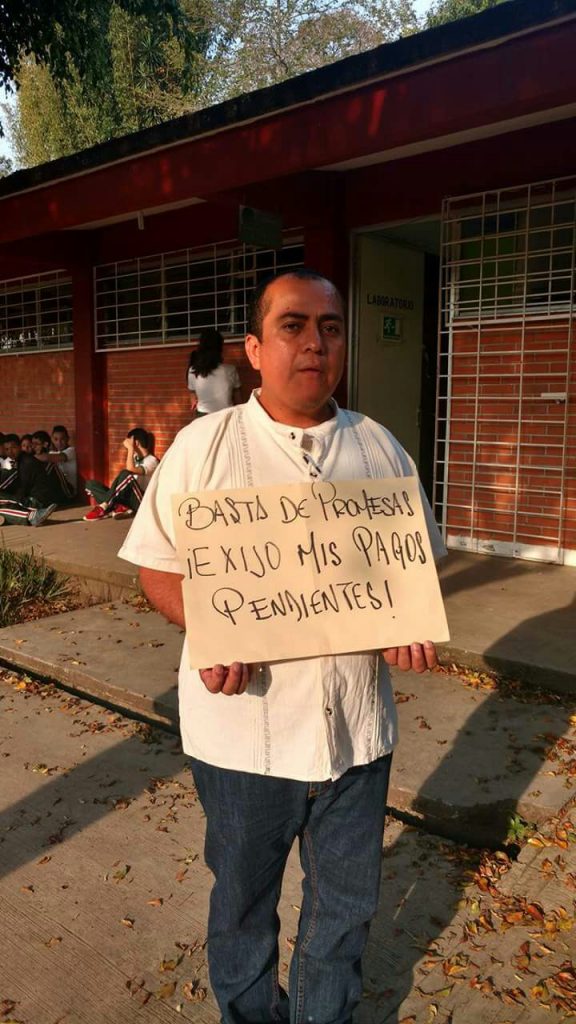 LABORATORIO
BASTA DE PROMESAS
¡EXIJO MIS PAGOS
PENDIENTES!